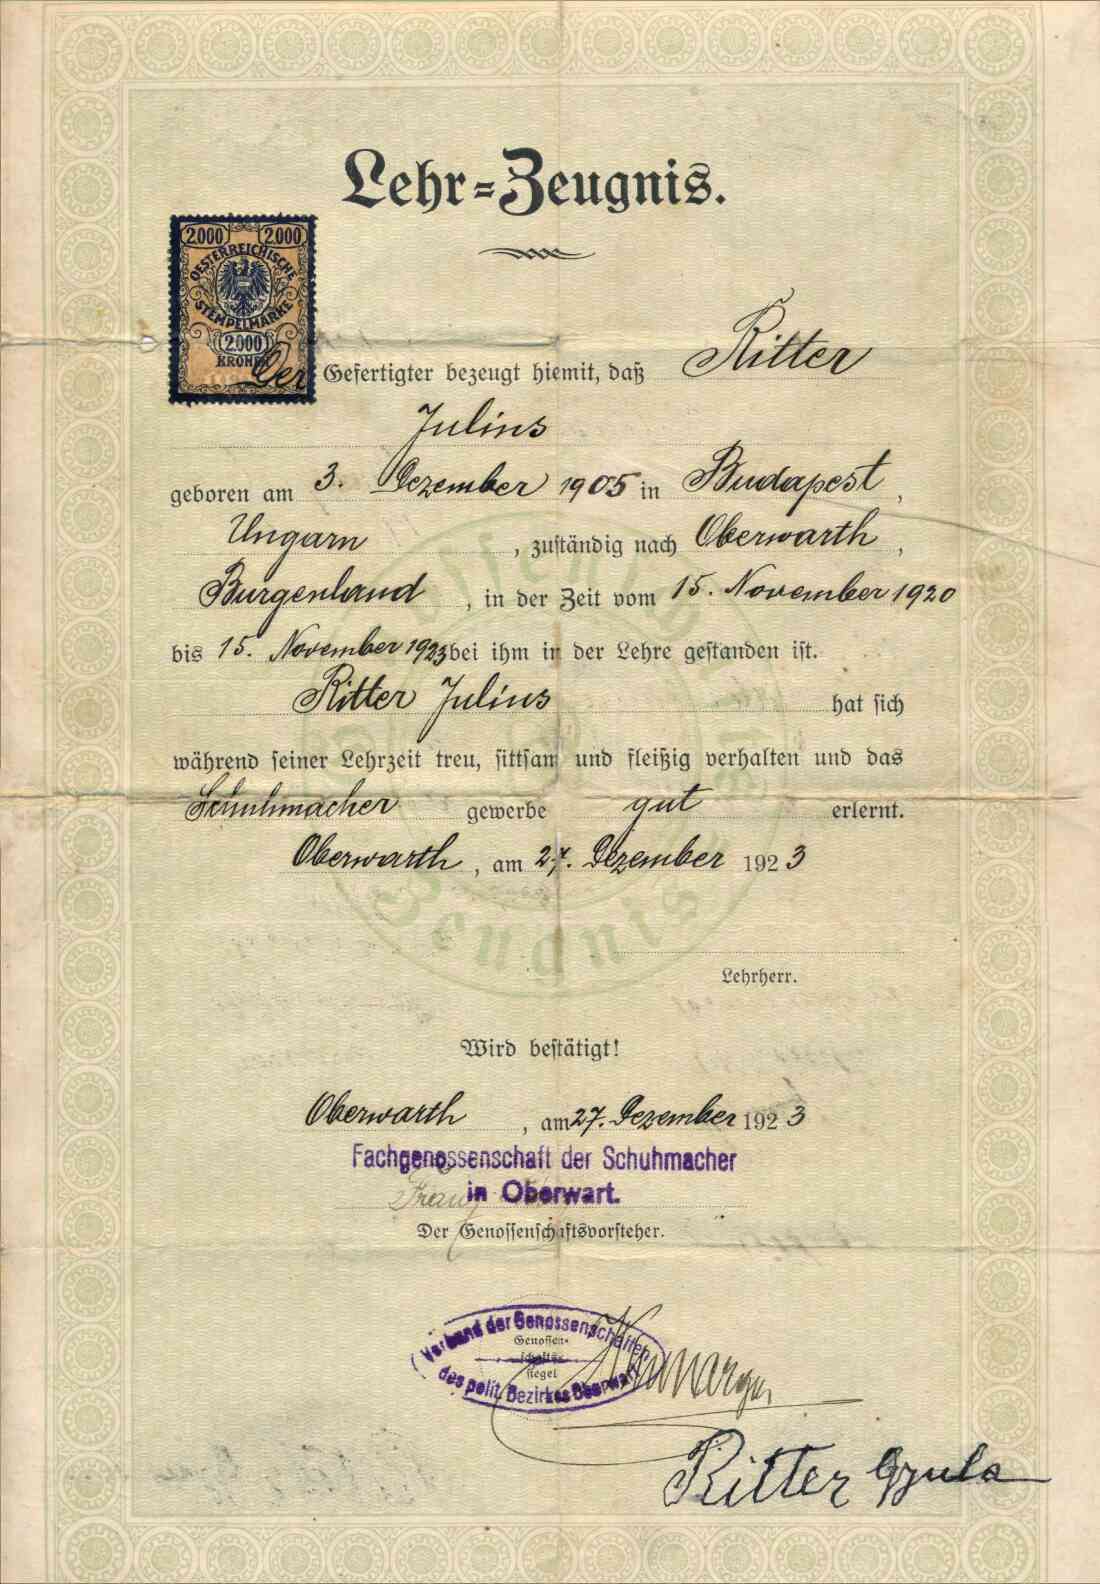 Lehr=Zeugnis.
2.000 2.000
OESTERREICHISCHE
STEMPELMARKE
2.000
KRONEN
Der Gefertigter bezeugt hiemit, daß Ritter
Julius
geboren am 3. Dezember 1905 in Budapest,
Ungarn, zuständig nach Oberwarth,
Burgenland, in der Zeit vom 15. November 1920
bis 15. November 1923 bei ihm in der Lehre gestanden ist.
Ritter Julius hat sich
während seiner Lehrzeit treu, sittsam und fleißig verhalten und das
Schuhmacher gewerbe gut erlernt.
Oberwarth, am 27. Dezember 1923
Zeugnis
Lehrherr.
Wird bestätigt!
Oberwarth, am 27. Dezember 1923
Fachgenossenschaft der Schuhmacher
in Oberwart.
Franz
Der Genossenschaftsvorsteher.
Verband der Genossenschaften
Genossen-
schafts-
siegel
des polit. Bezirkes Oberwart
Ritter Gyula